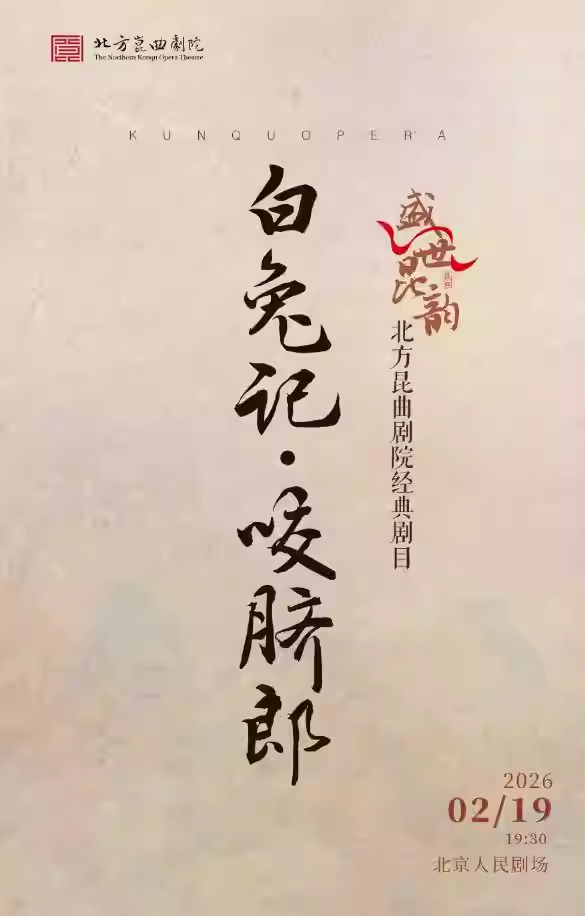 北方崑曲劇院
The Northern Kunqu Opera Theatre
KUNQUOPERA
白兔记·咬脐郎
盛世昆韵
北方昆曲剧院经典剧目
2026
02/19
19:30
北京人民剧场